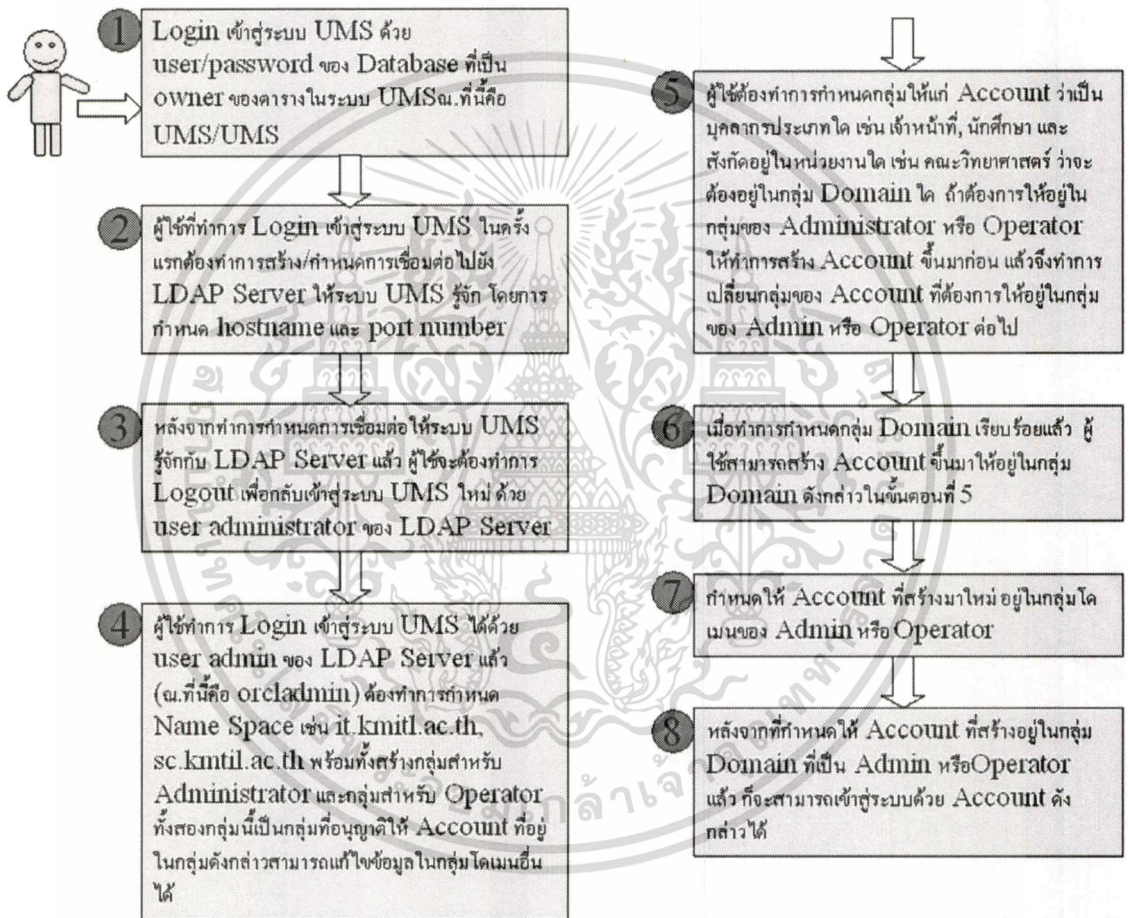 1
Login เข้าสู่ระบบ UMS ด้วย
user/password ของ Database ที่เป็น
owner ของตารางในระบบ UMSณ.ที่นี้คือ
UMS/UMS
2
ผู้ใช้ที่ทำการ Login เข้าสู่ระบบ UMS ในครั้ง
แรกต้องทำการสร้าง/กำหนดการเชื่อมต่อไปยัง
LDAP Server ให้ระบบ UMS รู้จัก โดยการ
กำหนด hostname และ port number
3
หลังจากทำการกำหนดการเชื่อมต่อให้ระบบ UMS
รู้จักกับ LDAP Server แล้ว ผู้ใช้จะต้องทำการ
Logout เพื่อกลับเข้าสู่ระบบ UMS ใหม่ ด้วย
user administrator ของ LDAP Server
4
ผู้ใช้ทำการ Login เข้าสู่ระบบ UMS ได้ด้วย
user admin ของ LDAP Server แล้ว
(ณ.ที่นี้คือ orcladmin) ต้องทำการกำหนด
Name Space เช่น it.kmitl.ac.th,
sc.kmtil.ac.th พร้อมทั้งสร้างกลุ่มสำหรับ
Administrator และกลุ่มสำหรับ Operator
ทั้งสองกลุ่มนี้เป็นกลุ่มที่อนุญาติให้ Account ที่อยู่
ในกลุ่มดังกล่าวสามารถแก้ไขข้อมูลในกลุ่มโดเมนอื่น
ได้
5
ผู้ใช้ต้องทำการกำหนดกลุ่มให้แก่ Account ว่าเป็น
บุคลากรประเภทใด เช่น เจ้าหน้าที่, นักศึกษา และ
สังกัดอยู่ในหน่วยงานใด เช่น คณะวิทยาศาสตร์ ว่าจะ
ต้องอยู่ในกลุ่ม Domain ใด ถ้าต้องการให้อยู่ใน
กลุ่มของ Administrator หรือ Operator
ให้ทำการสร้าง Account ขึ้นมาก่อน แล้วจึงทำการ
เปลี่ยนกลุ่มของ Account ที่ต้องการให้อยู่ในกลุ่ม
ของ Admin หรือ Operator ต่อไป
6
เมื่อทำการกำหนดกลุ่ม Domain เรียบร้อยแล้ว ผู้
ใช้สามารถสร้าง Account ขึ้นมาให้อยู่ในกลุ่ม
Domain ดังกล่าวในขั้นตอนที่ 5
7
กำหนดให้ Account ที่สร้างมาใหม่ อยู่ในกลุ่มโด
เมนของ Admin หรือ Operator
8
หลังจากที่กำหนดให้ Account ที่สร้างอยู่ในกลุ่ม
Domain ที่เป็น Admin หรือOperator
แล้ว ก็จะสามารถเข้าสู่ระบบด้วย Account ดัง
กล่าวได้